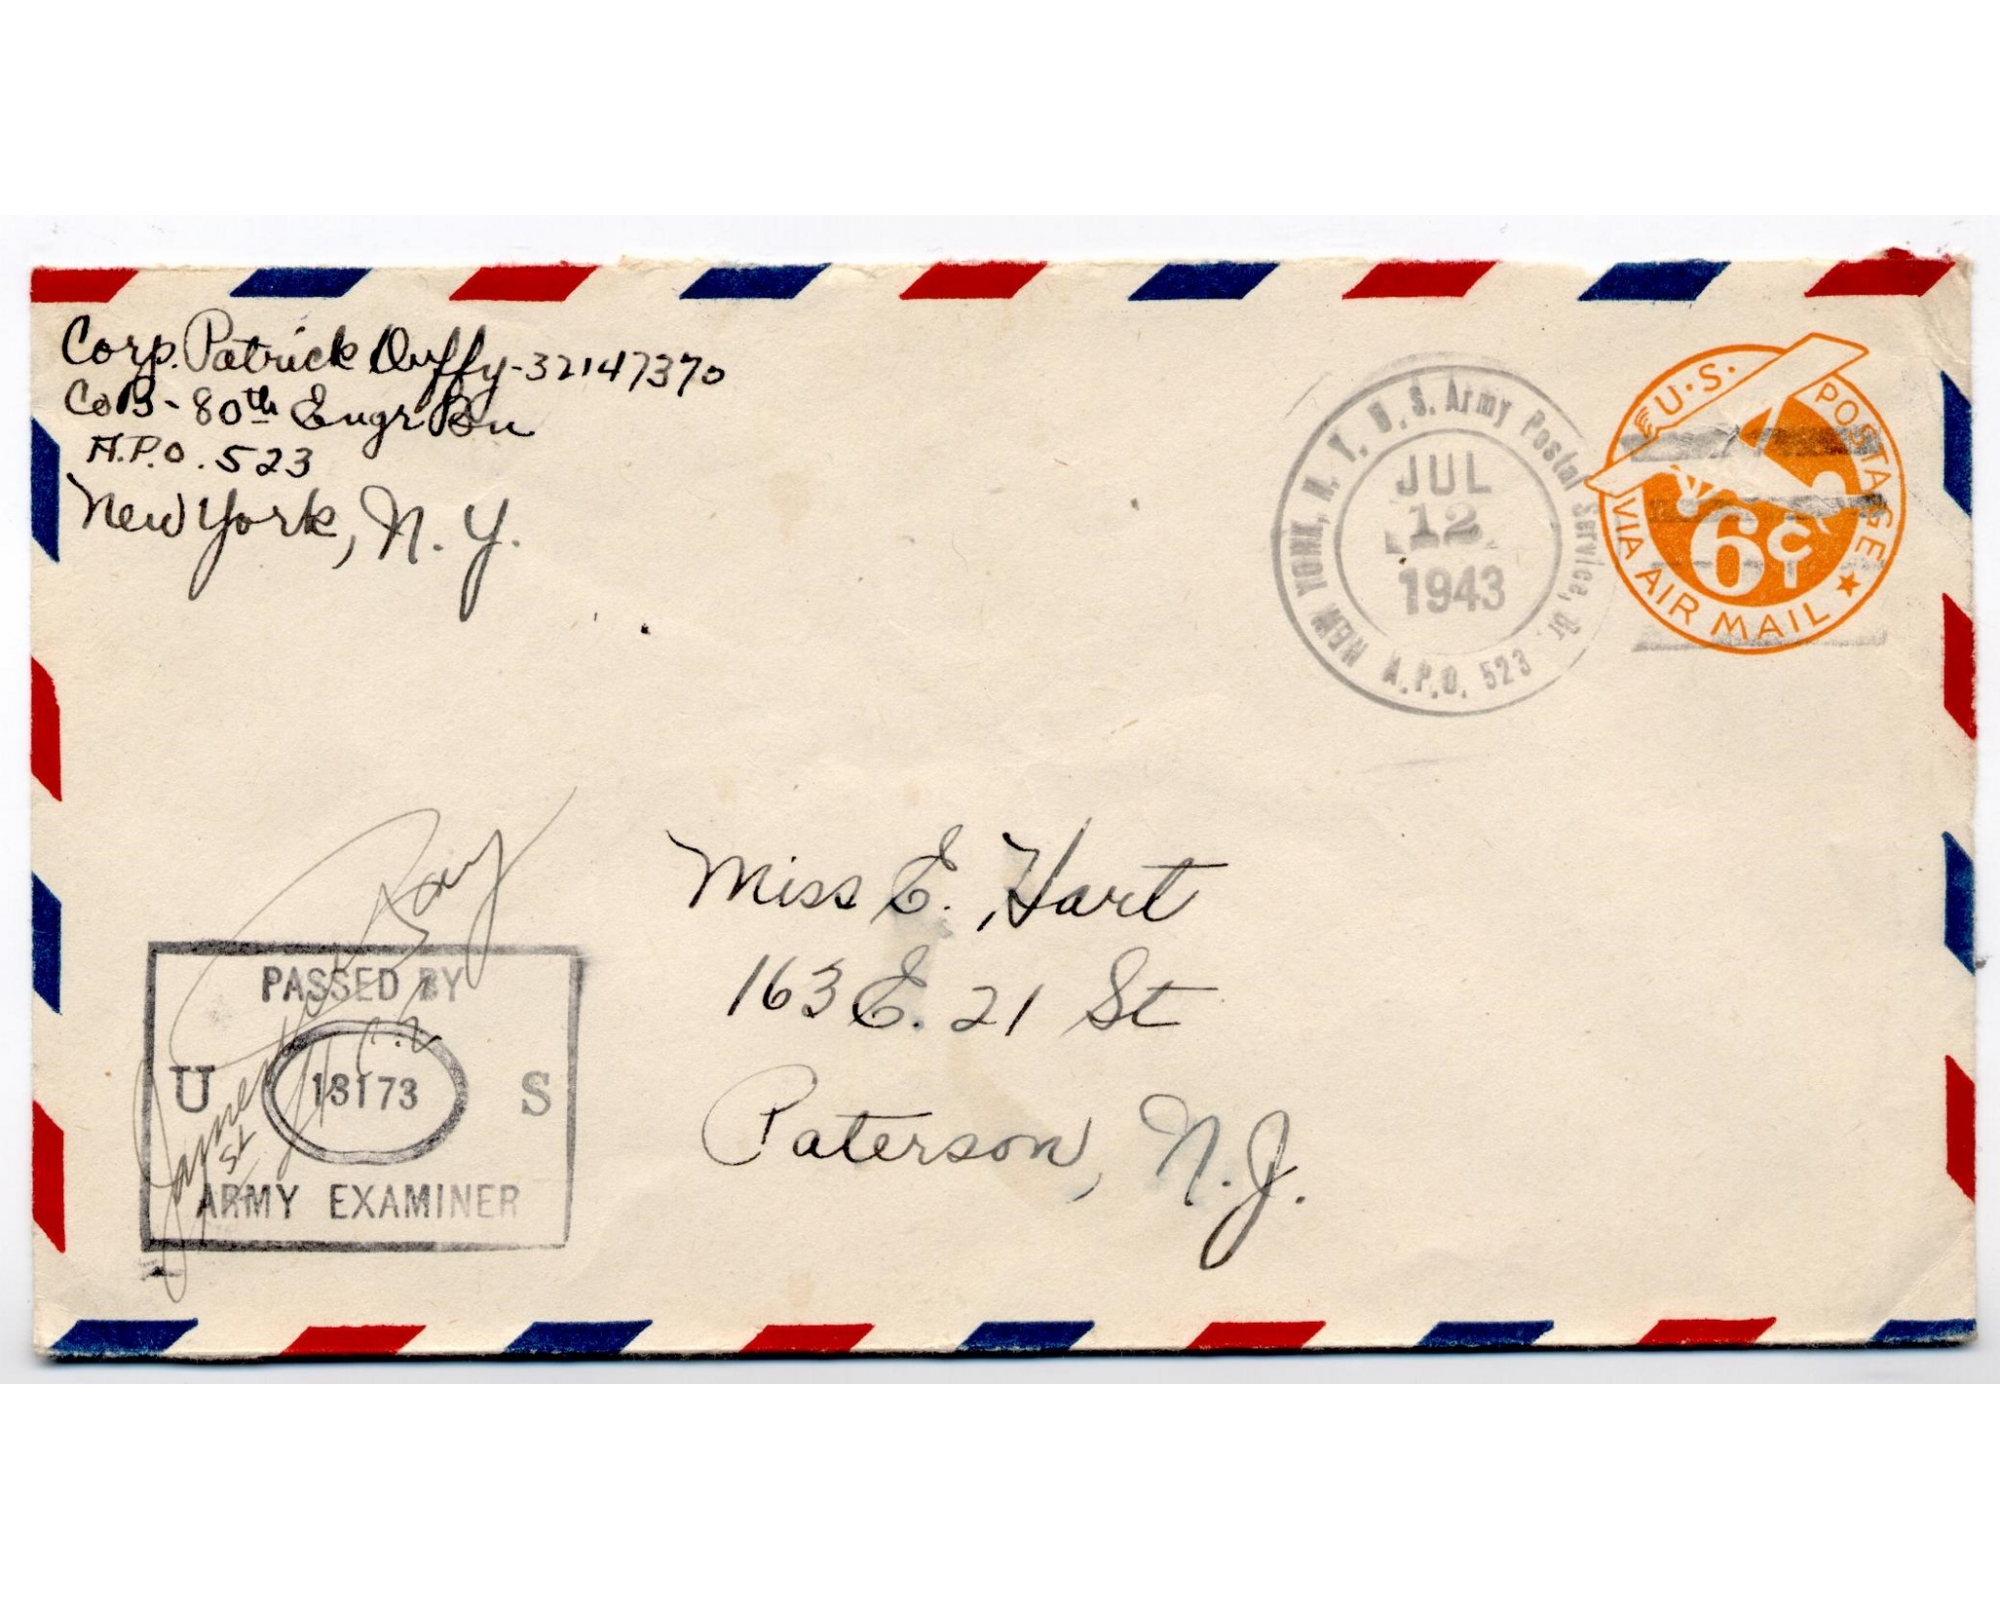 Corp. Patrick Duffy - 32147370
Co B - 80th Engr Bn
A.P.O. 523
New York, N. Y.
NEW YORK, N. Y. U. S. Army Postal Service, Br.
A.P.O. 523
JUL
12
1943
U.S. POSTAGE
6¢
VIA AIR MAIL
Miss E. Hart
163 E. 21 St
Paterson, N. J.
PASSED BY
U 13173 S
ARMY EXAMINER
James Ray